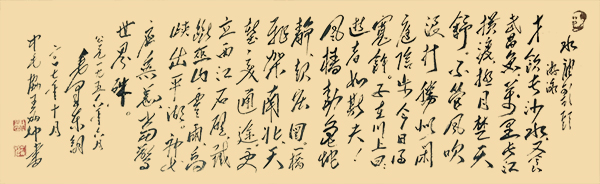 水调歌头
游泳
才饮长沙水又食
武昌鱼万里长江
横渡极目楚天
舒不管风吹
浪打胜似闲
庭信步今日得
宽馀子在川上曰
逝者如斯夫
风樯动龟蛇
静起宏图一桥
飞架南北天
堑变通途更
立西江石壁截
断巫山云雨高
峡出平湖神女
应无恙当惊
世界殊
公元一九五六年六月
毛泽东词
二〇〇七年十月